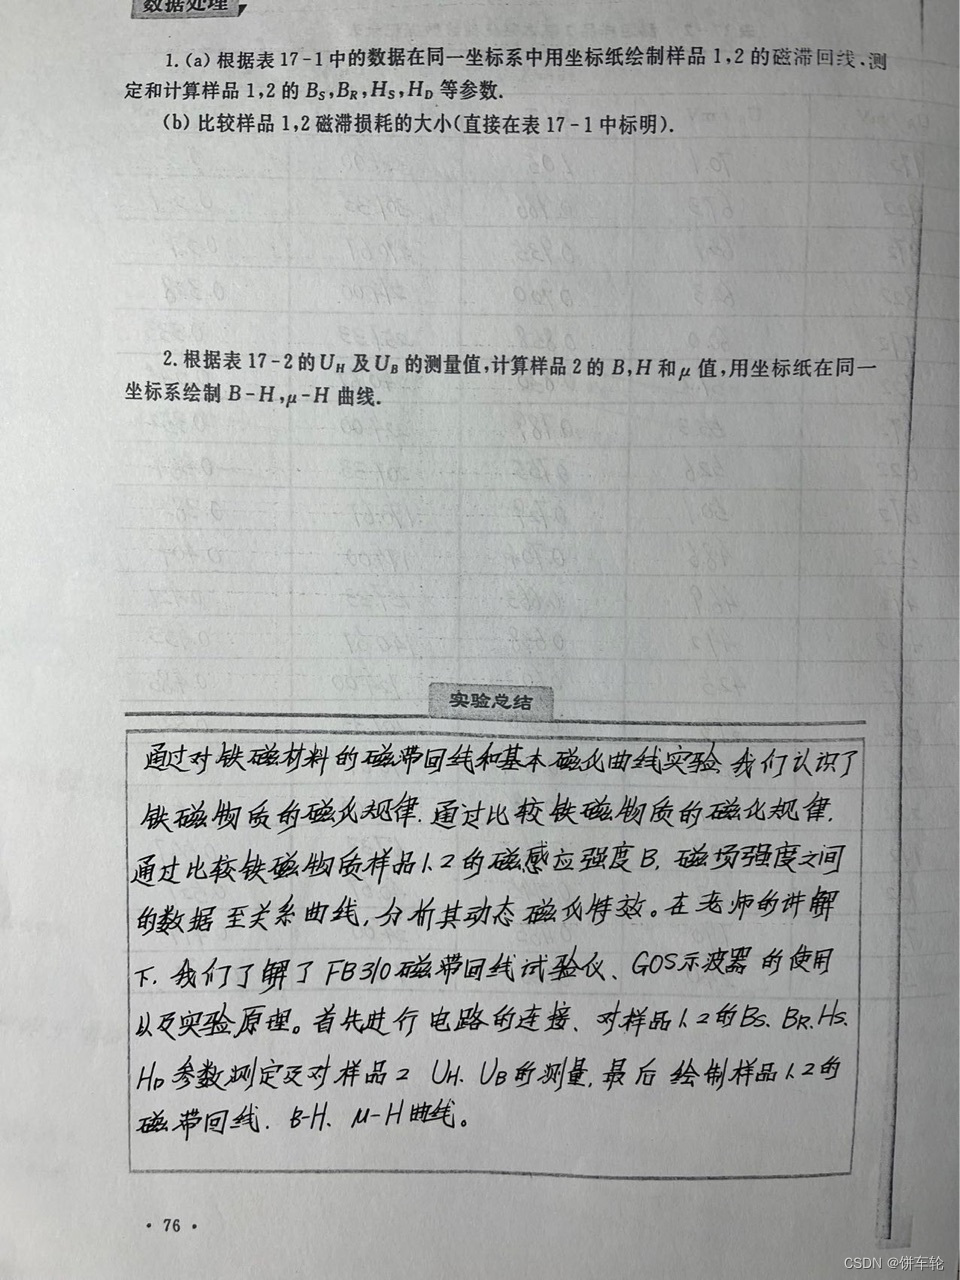 数据处理
1. (a) 根据表 17-1 中的数据在同一坐标系中用坐标纸绘制样品 1,2 的磁滞回线,测
定和计算样品 1,2 的 Bs,BR,Hs,HD 等参数.
(b) 比较样品 1,2 磁滞损耗的大小(直接在表 17-1 中标明).
2. 根据表 17-2 的 UH 及 UB 的测量值,计算样品 2 的 B,H 和 μ 值,用坐标纸在同一
坐标系绘制 B-H,μ-H 曲线.
实验总结
通过对铁磁材料的磁带回线和基本磁化曲线实验,我们认识了
铁磁物质的磁化规律.通过比较铁磁物质的磁化规律.
通过比较铁磁物质样品1.2的磁感应强度B.磁场强度之间
的数据至关系曲线,分析其动态磁化特效。在老师的讲解
下.我们了解了FB310磁带回线试验仪、GOS示波器的使用
以及实验原理。首先进行电路的连接、对样品1.2的Bs、BR、Hs、
HD参数测定及对样品2 UH、UB的测量,最后绘制样品1、2的
磁带回线.B-H、μ-H曲线。
• 76 •
CSDN @饼车轮